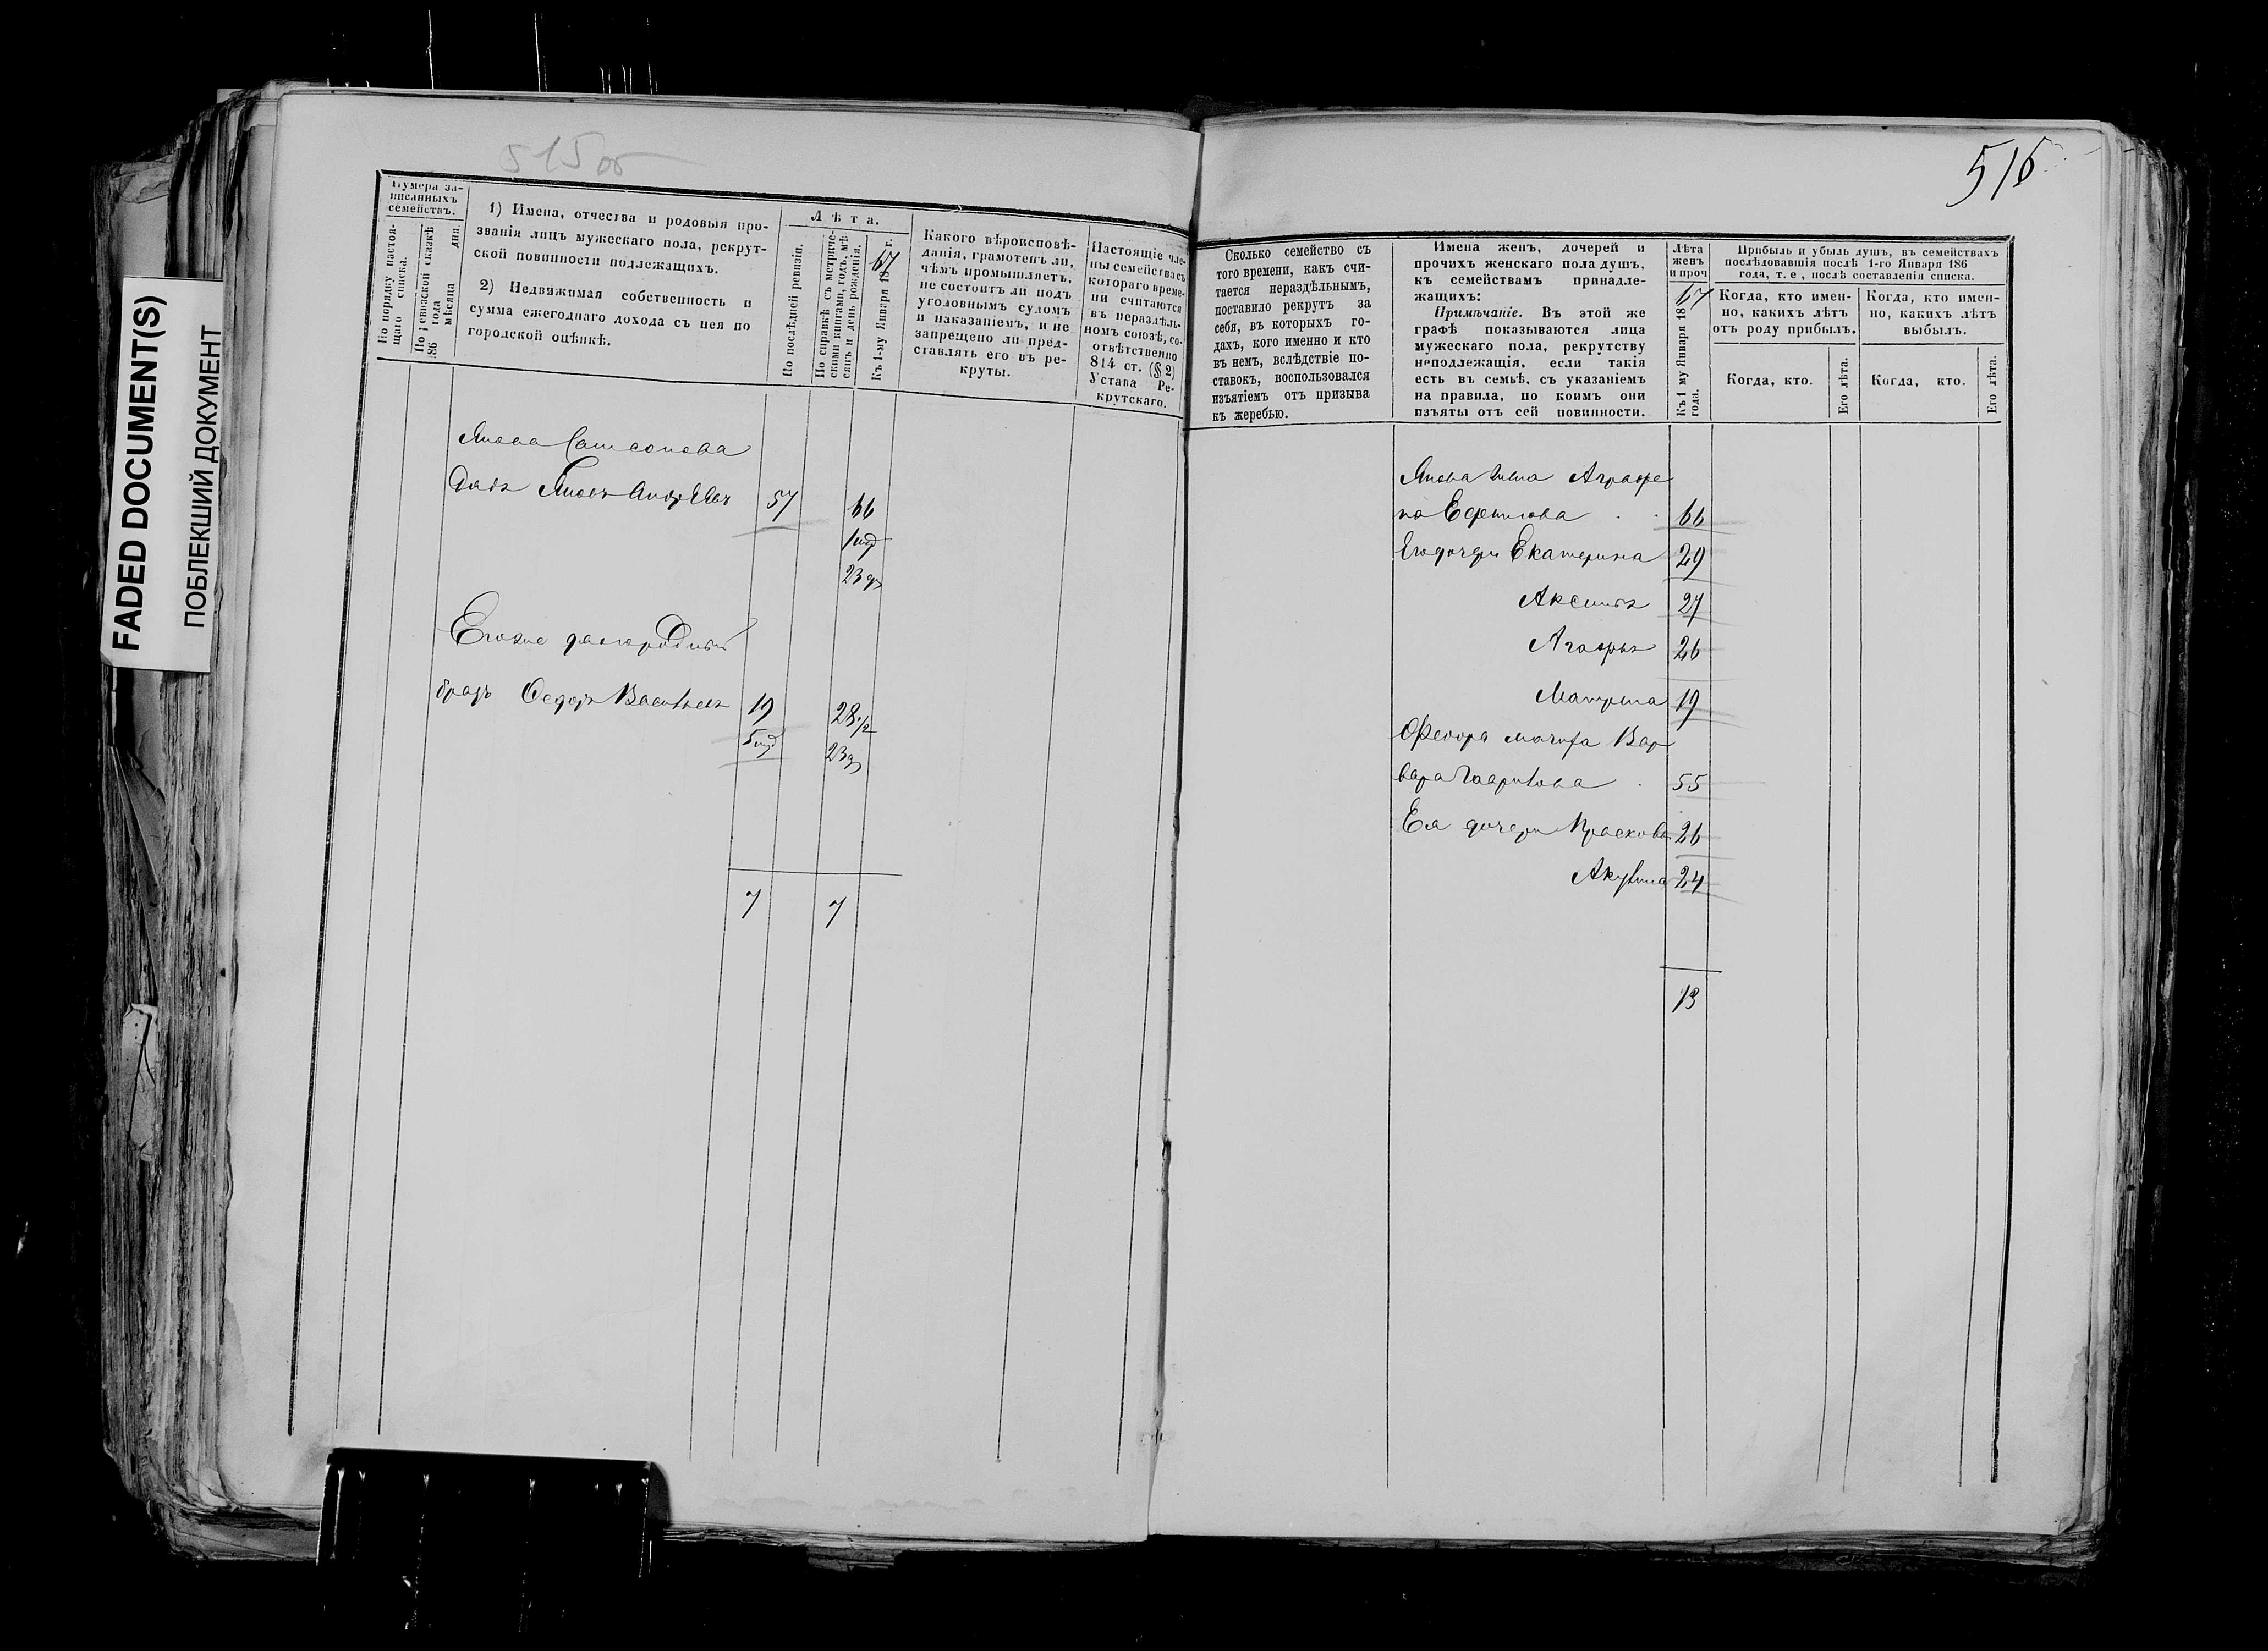 FADED DOCUMENT(S)
ПОБЛЕКШИЙ ДОКУМЕНТ
515об
Нумера за-
писанныхъ
семействъ.
По порядку настоя-
щаго списка.
По ревизской сказкѣ
186 года
мѣсяца дня.
1) Имена, отчества и родовыя про-
званія лицъ мужескаго пола, рекрут-
ской повинности подлежащихъ.
2) Недвижимая собственность и
сумма ежегоднаго дохода съ нея по
городской оцѣнкѣ.
Лѣта.
По послѣдней ревизіи.
По справкѣ съ метриче-
скими книгами, годъ, мѣ-
сяцъ и день рожденія.
Къ 1-му Января 1867 г.
Какого вѣроисповѣ-
данія, грамотенъ ли,
чѣмъ промышляетъ,
не состоитъ ли подъ
уголовнымъ судомъ
и наказаніемъ, и не
запрещено ли пред-
ставлять его въ ре-
круты.
Настоящіе чле-
ны семейства съ
котораго време-
ни считаются
въ нераздѣль-
номъ союзѣ, со-
отвѣтственно
814 ст. (§ 2)
Устава Ре-
крутскаго.
Самсонова
дядя Андреевъ 57 66
23 дн
Егоже двоюродный
братъ Федоръ Васильевъ 19 28 1/2
23 д
7 7
516
Сколько семейство съ
того времени, какъ счи-
тается нераздѣльнымъ,
поставило рекрутъ за
себя, въ которыхъ го-
дахъ, кого именно и кто
въ немъ, вслѣдствіе по-
ставокъ, воспользовался
изъятіемъ отъ призыва
къ жеребью.
Имена женъ, дочерей и
прочихъ женскаго пола душъ,
къ семействамъ принадле-
жащихъ:
Примѣчаніе. Въ этой же
графѣ показываются лица
мужескаго пола, рекрутству
неподлежащія, если такія
есть въ семьѣ, съ указаніемъ
на правила, по коимъ они
изъяты отъ сей повинности.
Лѣта
женъ
и проч
Къ 1 му Января 1867
года.
Прибыль и убыль душъ, въ семействахъ
послѣдовавшія послѣ 1-го Января 186
года, т. е, послѣ составленія списка.
Когда, кто имен-
но, какихъ лѣтъ
отъ роду прибылъ.
Когда, кто имен-
но, какихъ лѣтъ
выбылъ.
Когда, кто.
Его лѣта.
Когда, кто.
Его лѣта.
жена Аграфе
на Ефимова 66
Его дочери Екатерина 29
Аксинья 27
Агафья 26
Матрена 19
Федора мачиха Вар
вара Гаврилова 55
Ея дочери Прасковья 26
Акулина 24
13